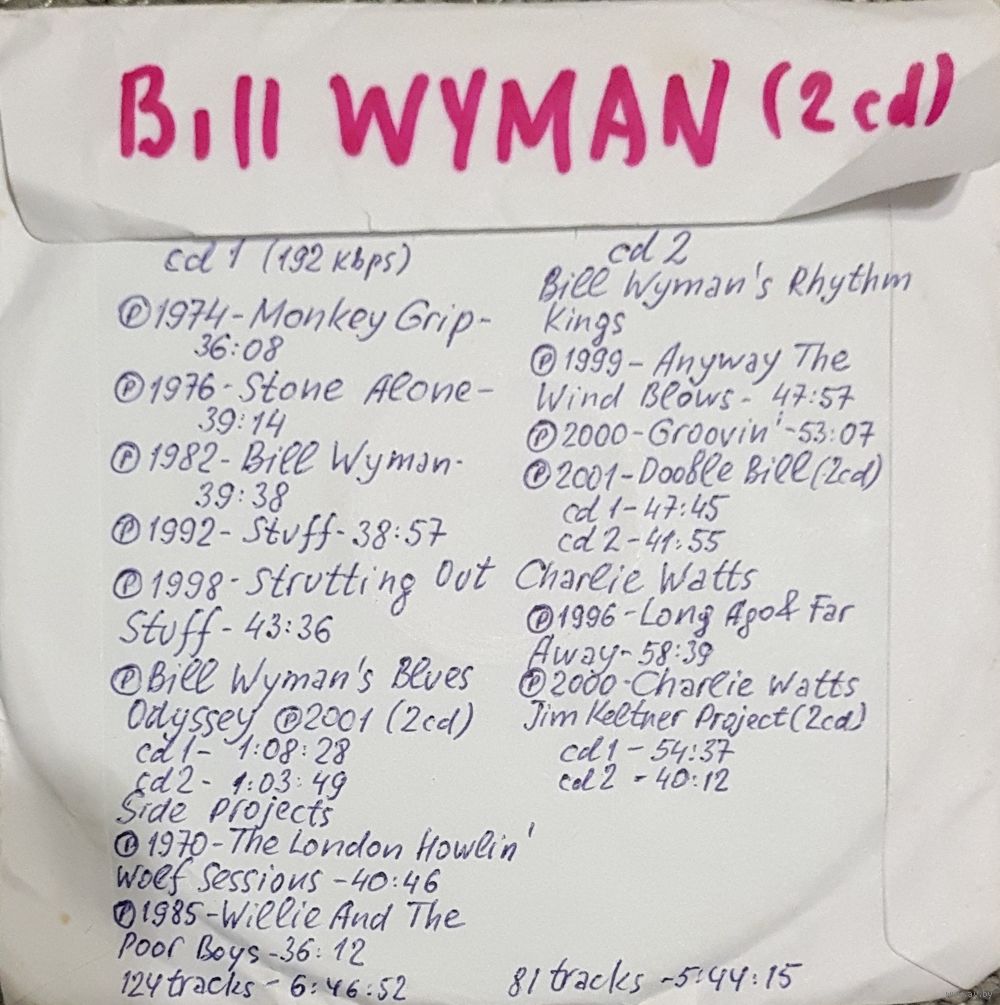 Bill WYMAN (2cd)
cd 1 (192 kbps)
℗1974-Monkey Grip-
36:08
℗1976-Stone Alone-
39:14
℗1982-Bill Wyman-
39:38
℗1992-Stuff-38:57
℗1998-Strutting Out
Stuff-43:36
℗Bill Wyman's Blues
Odyssey ℗2001 (2cd)
cd 1- 1:08:28
cd 2- 1:03:49
Side Projects
℗1970-The London Howlin'
Wolf Sessions -40:46
℗1985-Willie And The
Poor Boys-36:12
124 tracks - 6:46:52
cd 2
Bill Wyman's Rhythm
Kings
℗1999-Anyway The
Wind Blows- 47:57
℗2000-Groovin'-53:07
℗2001-Dooble Bill (2cd)
cd 1-47:45
cd 2-41:55
Charlie Watts
℗1996-Long Ago & Far
Away-58:39
℗2000-Charlie Watts
Jim Keltner Project (2cd)
cd 1-54:37
cd 2 - 40:12
81 tracks -5:44:15